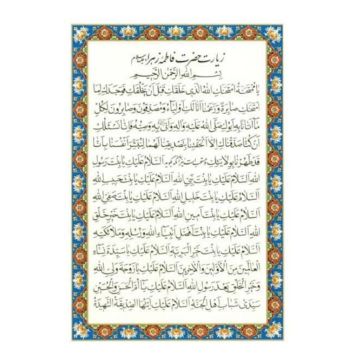 زیارت حضرت فاطمه زهرا علیهاالسلام
بِسْمِ اللهِ الرَّحْمٰنِ الرَّحِیْمِ
یا مُمْتَحَنَةُ امْتَحَنَكِ اللهُ الَّذی خَلَقَكِ قَبْلَ اَنْ یَخْلُقَكِ فَوَجَدَكِ لِمَا
امْتَحَنَكِ صابِرَةً وَزَعَمْنا اَنّا لَكِ اَوْلِیآءُ وَمُصَدِّقُونَ وَصابِرُونَ لِكُلِّ
ما اَتانا بِهِ اَبُوكِ صَلَّی اللهُ عَلَیْهِ وَآلِهِ وَاَتی بِهِ وَصِیُّهُ فَاِنّا نَسْئَلُكِ
اِنْ كُنّا صَدَّقْناكِ اِلاّ اَلْحَقْتِنا بِتَصْدیقِنا لَهُما لِنُبَشِّرَ اَنْفُسَنا بِاَنّا
قَدْ طَهُرْنا بِوِلایَتِكِ اَلسَّلامُ عَلَیْكِ یا بِنْتَ رَسُولِ
اللهِ اَلسَّلامُ عَلَیْكِ یا بِنْتَ نَبِیِّ اللهِ اَلسَّلامُ عَلَیْكِ یا بِنْتَ حَبیبِ اللهِ
اَلسَّلامُ عَلَیْكِ یا بِنْتَ خَلیلِ اللهِ اَلسَّلامُ عَلَیْكِ یا بِنْتَ صَفِیِّ اللهِ
اَلسَّلامُ عَلَیْكِ یا بِنْتَ اَمینِ اللهِ اَلسَّلامُ عَلَیْكِ یا بِنْتَ خَیْرِ خَلْقِ
اللهِ اَلسَّلامُ عَلَیْكِ یا بِنْتَ اَفْضَلِ اَنْبِیآءِ اللهِ وَرُسُلِهِ وَمَلائِكَتِهِ
اَلسَّلامُ عَلَیْكِ یا بِنْتَ خَیْرِ الْبَرِیَّةِ اَلسَّلامُ عَلَیْكِ یا سَیِّدَةَ نِسآءِ
الْعالَمینَ مِنَ الْاَوَّلینَ وَالْاخِرینَ اَلسَّلامُ عَلَیْكِ یا زَوْجَةَ وَلِیِّ اللهِ
وَخَیْرِ الْخَلْقِ بَعْدَ رَسُولِ اللهِ اَلسَّلامُ عَلَیْكِ یا اُمَّ الْحَسَنِ وَالْحُسَیْنِ
سَیِّدَیْ شَبابِ اَهْلِ الْجَنَّةِ اَلسَّلامُ عَلَیْكِ اَیَّتُهَا الصِّدّیقَةُ الشَّهیدَةُ